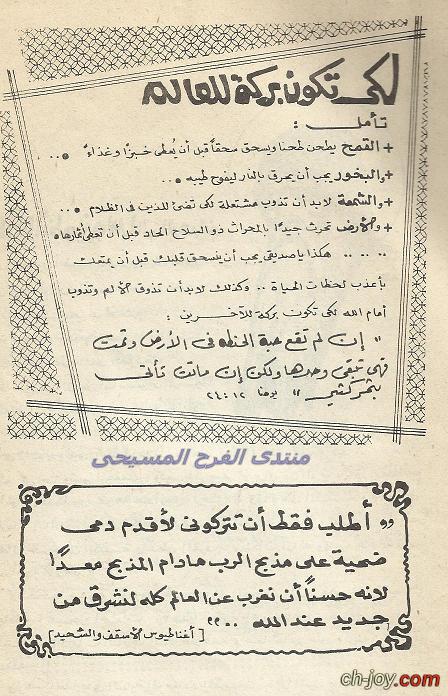 لكى تكون بركة للعالم
تأمل :
+ القمح يطحن طحنا ويسحق سحقاً قبل أن يُعطى خبزًا وغذاءً ..
+ والبخور يجب أن يحرق بالنار ليفوح طيبه ..
+ والشمعة لابد أن تذوب مشتعلة لكى تضئ للذين فى الظلام ..
+ والأرض تحرث جيدًا بالمحراث ذو السلاح الحاد قبل أن تعطى أثمارها
.. .. هكذا ياصديقى يجب أن ينسحق قلبك قبل أن يمتعك
بأعذب لحظات الحياة .. وكذلك لابد أن تذوق الألم وتذوب
أمام الله لكى تكون بركة للآخرين :
" إن لم تقع حبة الحنطة فى الأرض وتمت
فهى تبقى وحدها ولكن إن ماتت تأتى
بثمر كثير " يوحنا ١٢ : ٢٤
منتدى الفرح المسيحى
" أطلب فقط أن تتركونى لأقدم دمى
ضحية على مذبح الرب مادام المذبح معدًا
لأنه حسناً أن نغرب عن العالم كله لنشرق من
جديد عند الله .. "
[ أغناطيوس الأسقف والشهيد ]
ch-joy.com